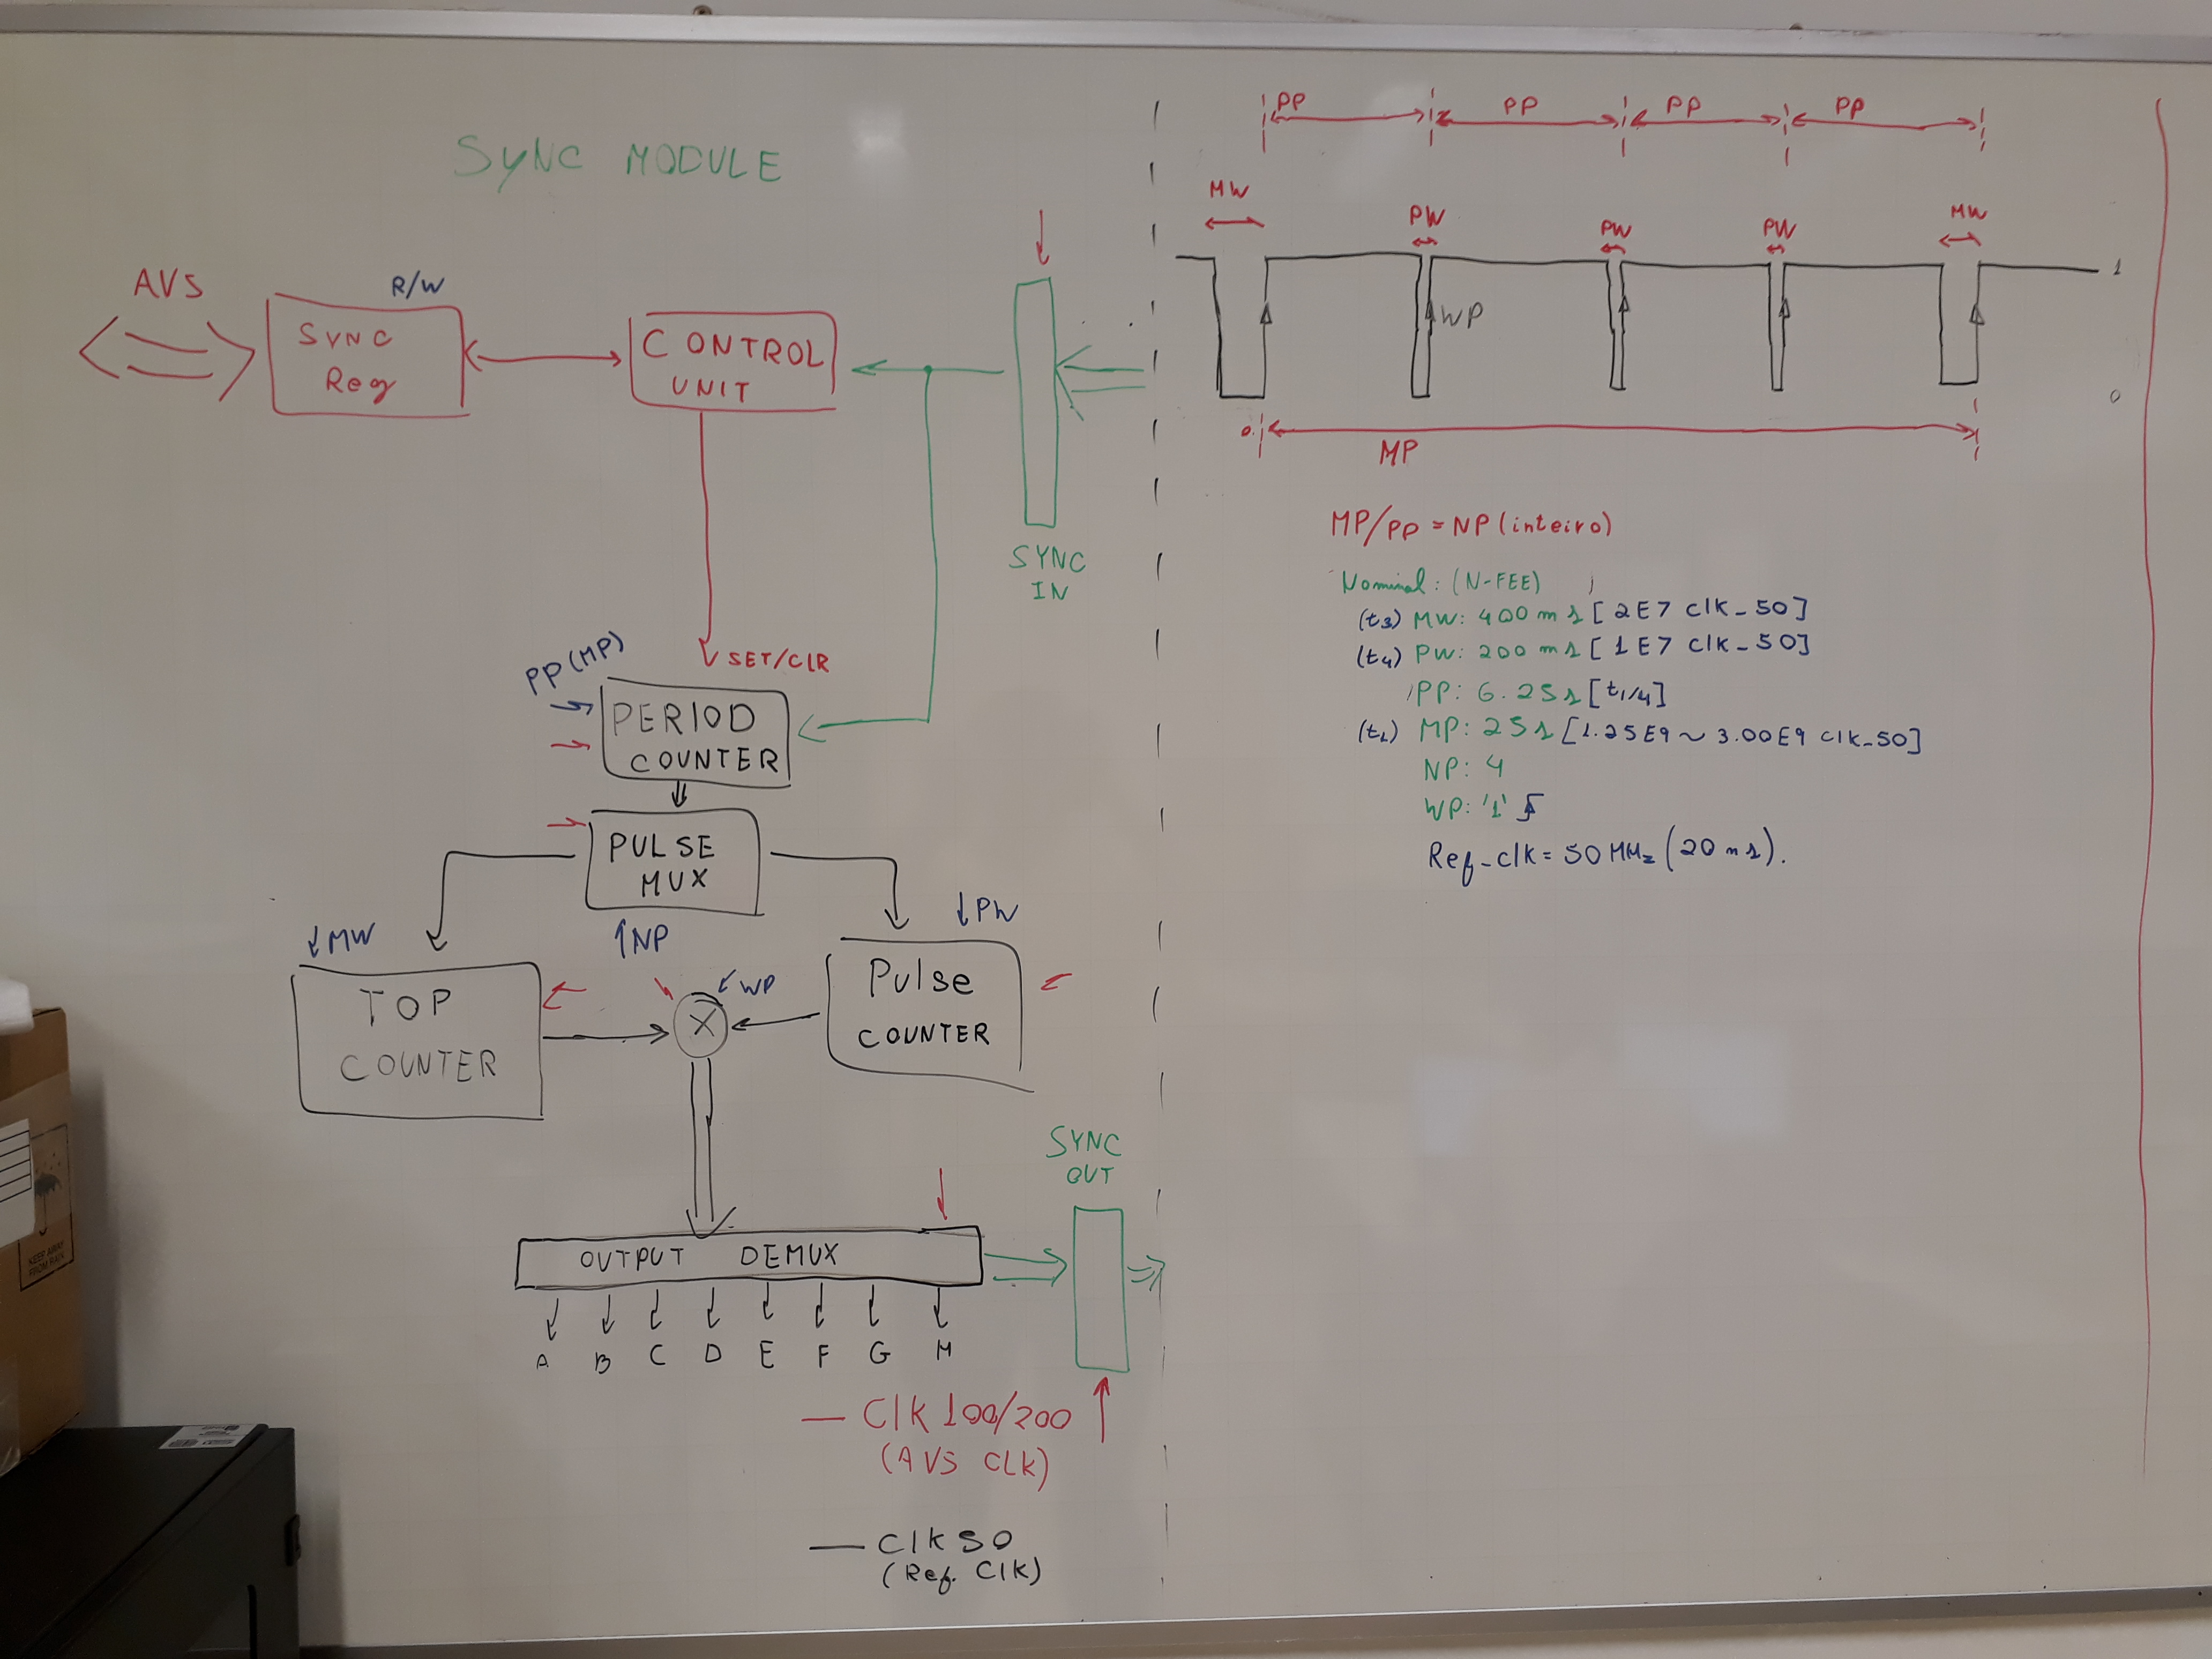 SYNC MODULE
AVS
R/W
SYNC
Reg
CONTROL
UNIT
SYNC
IN
SET/CLR
PP(MP)
PERIOD
COUNTER
PULSE
MUX
MW
NP
PW
WP
TOP
COUNTER
X
Pulse
COUNTER
SYNC
OUT
OUTPUT DEMUX
A B C D E F G H
Clk 100/200
(AVS CLK)
Clk 50
(Ref. Clk)
PP PP PP PP
MW PW PW PW MW
1
WP
0
0
MP
MP/PP = NP (inteiro)
Nominal: (N-FEE)
(t3) MW: 400 ms [2E7 clk_50]
(t4) PW: 200 ms [1E7 clk_50]
PP: 6.25s [t1/4]
(t1) MP: 25s [1.25E9 ~ 3.00E9 clk_50]
NP: 4
WP: '1'
Ref_clk = 50 MHz (20 ns).
KEEP AWAY
FROM RAIN